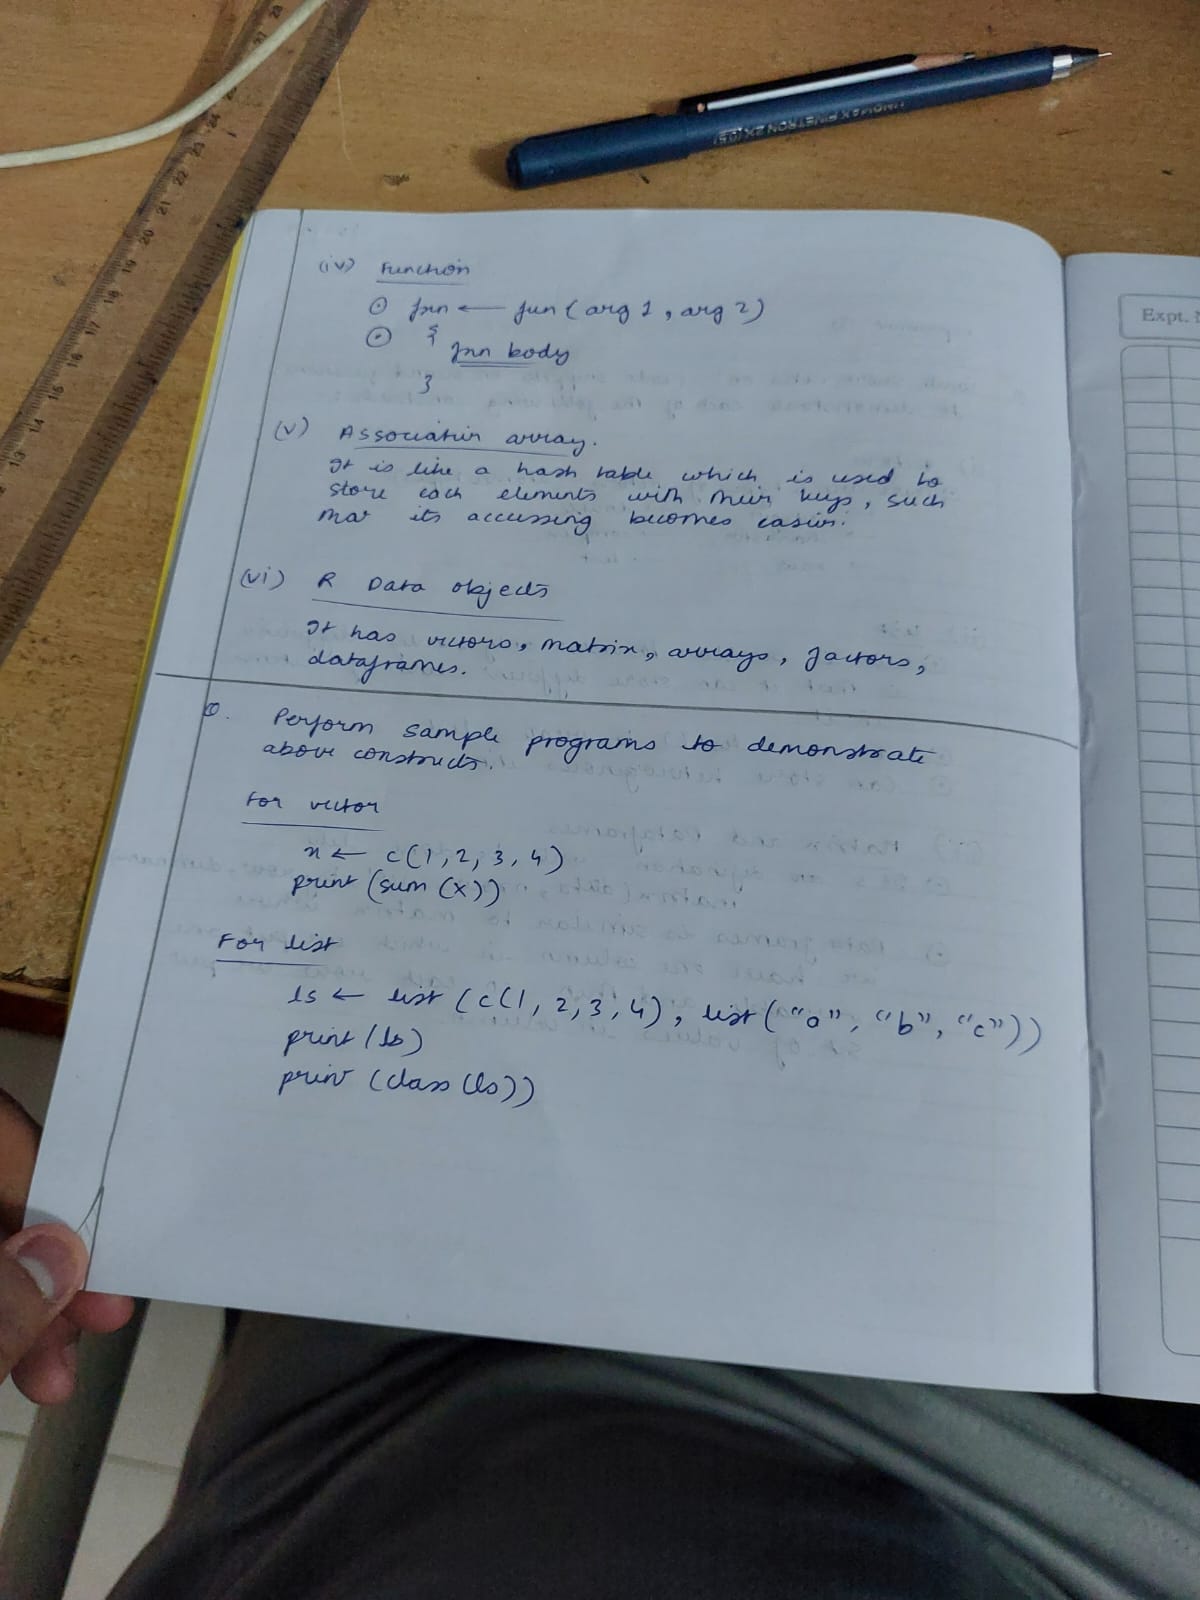 (iv) Function
⊙ fxn ← fun (arg 1, arg 2)
⊙ {
fxn body
}
(v) Associative array.
It is like a hash table which is used to
store each elements with their keys, such
that its accessing becomes easier.
(vi) R Data objects
It has vectors, matrix, arrays, factors,
dataframes.
Q. Perform sample programs to demonstrate
above constructs.
For vector
x ← c(1, 2, 3, 4)
print (sum (x))
For list
ls ← list (c(1, 2, 3, 4), list ("a", "b", "c"))
print (ls)
print (class (ls))
Expt.